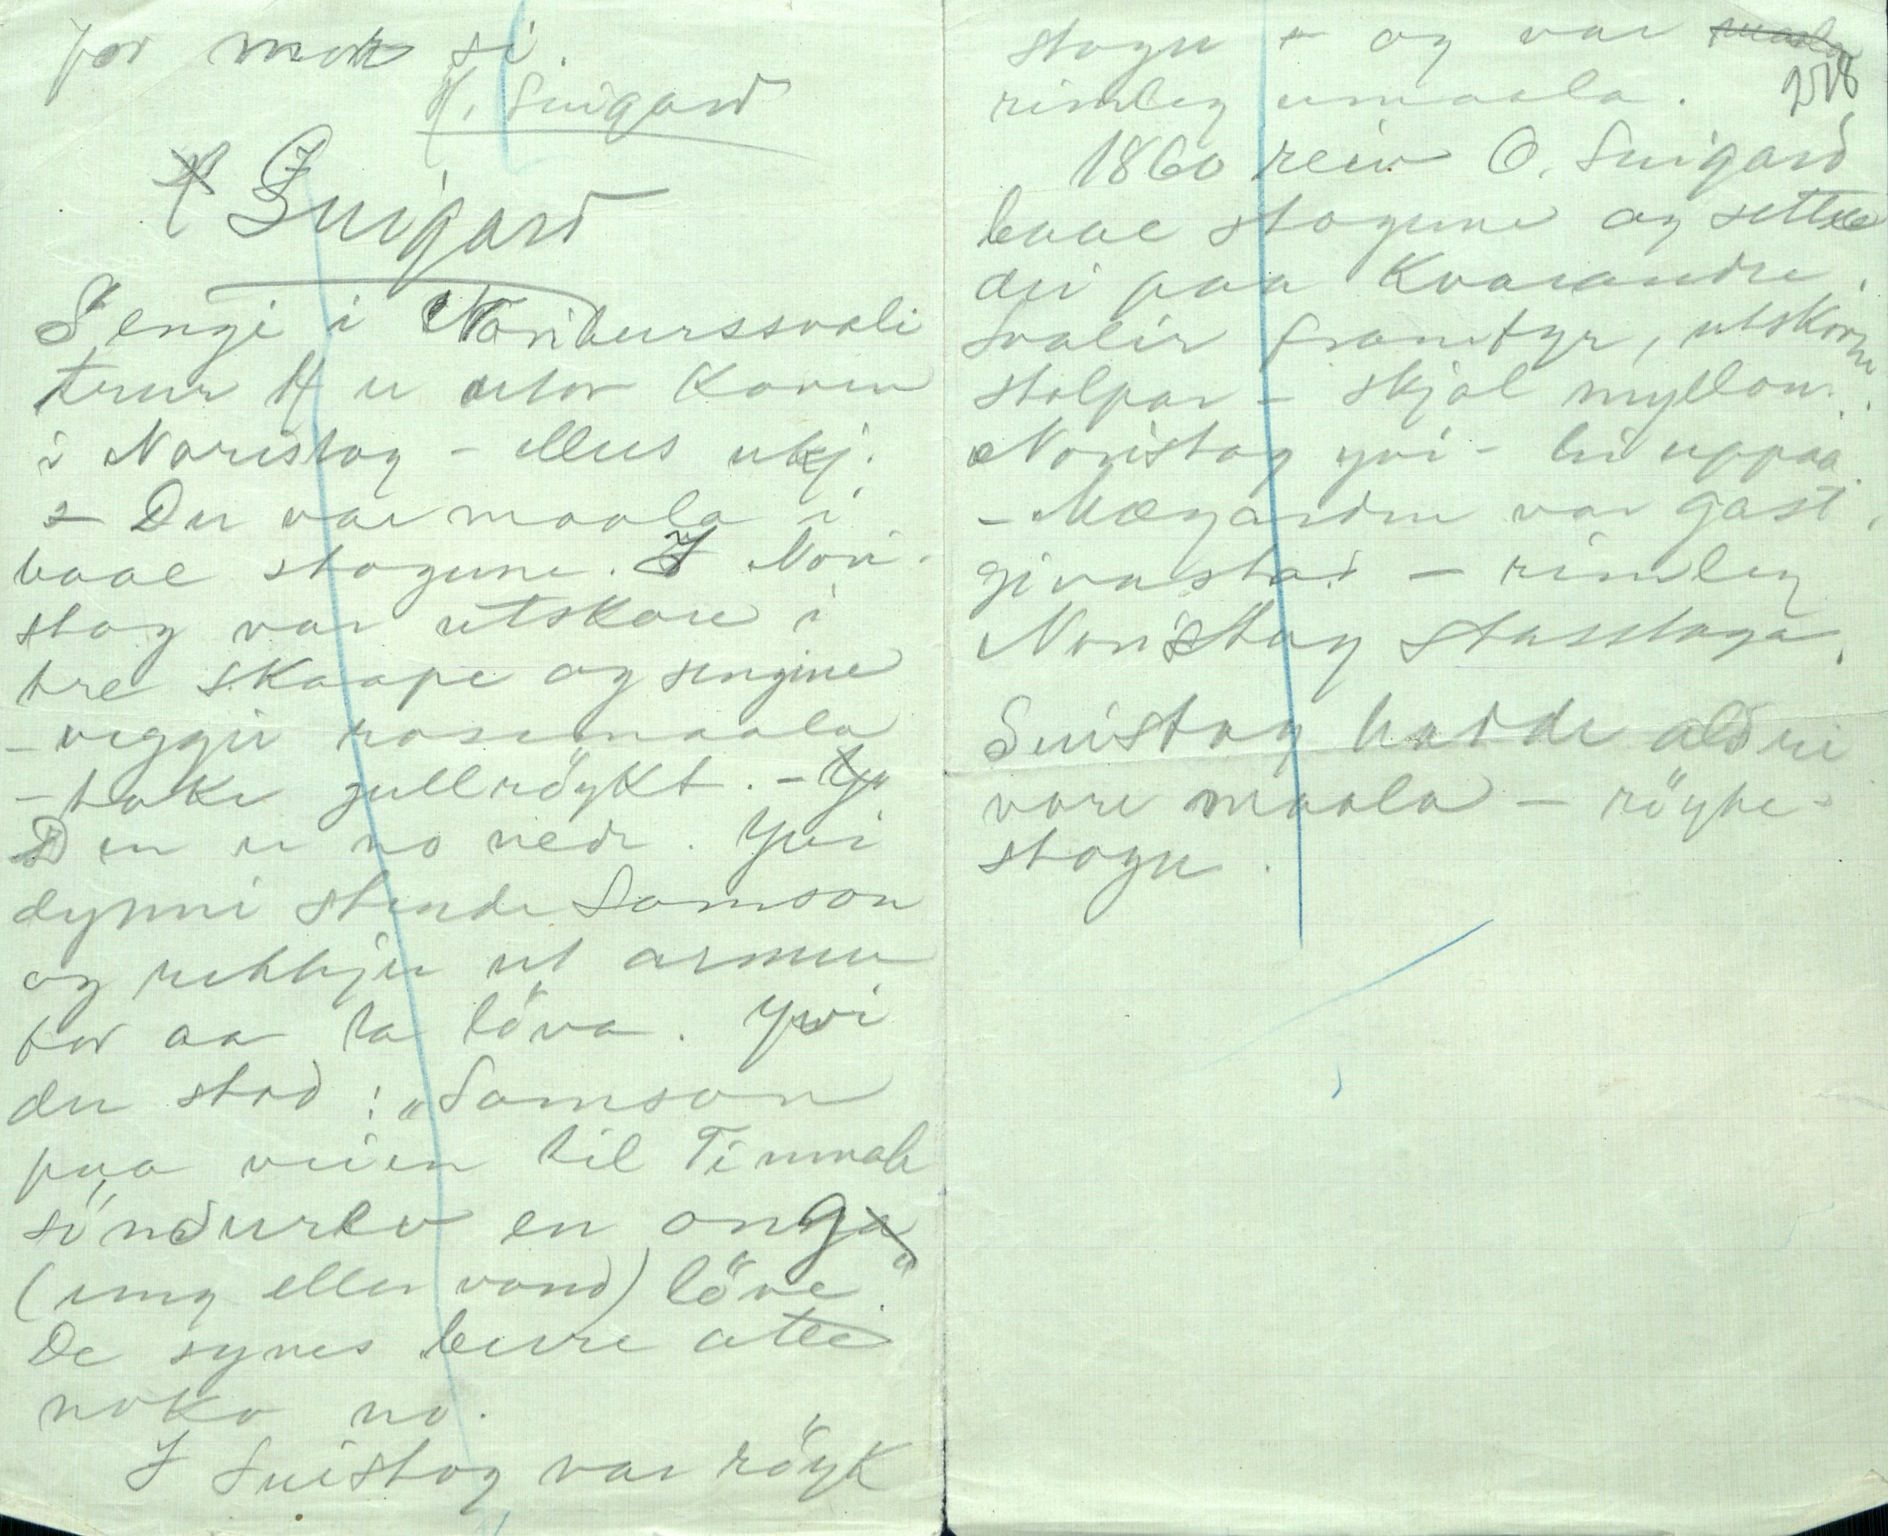 for mor si.
H. Suigard
Suigard
Sengi i Noriburssvali
trur H er utor Koven
i Noristog – ellers ukj.
– Der var maala i
baae stogune. I Nori-
stog var utskore i
tre skaape og sengine
– veggir rosemaala
– take gullröykt. –
Den er no nedr. Yvi
dynni stende Samson
og rekkjer ut armen
for aa ta löva. Yvi
der stod: „Samson
paa veien til Timnah
sönderrev en onga
(ung eller vond) löve"
De synes berre atte
noko no.
I Suistog var röyk
stogu – og var maala
258
rimleg umaala.
1860 reiv O. Suigard
baae stogune og sette
dei paa Kvarandre.
Svalir framtyr, utskorne
stolpar – skjol myllom.
Noristog yvi – hi uppaa
– Mægarden var gast-
givarstad – rimleg
Noristog stasstoga.
Suistog hadde aldri
vore maala – röyke-
stogu.